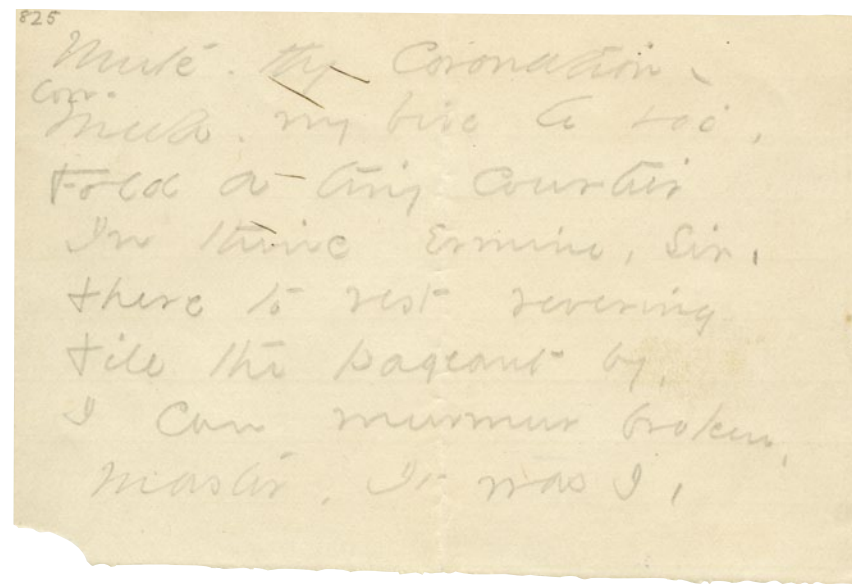 825
Mute - thy Coronation -
Meek - my Vive le roi,
Fold a tiny courtier
In thine Ermine, Sir,
there to rest revering
till the pageant by,
I can murmur broken,
Master, It was I,